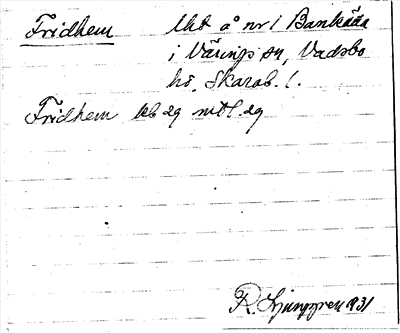 Fridhem lht å nr 1 Bankälla
i Värings sn, Vadsbo
hd, Skarab. l.
Fridhem kb 29 mtl. 29
R. Ljunggren 931